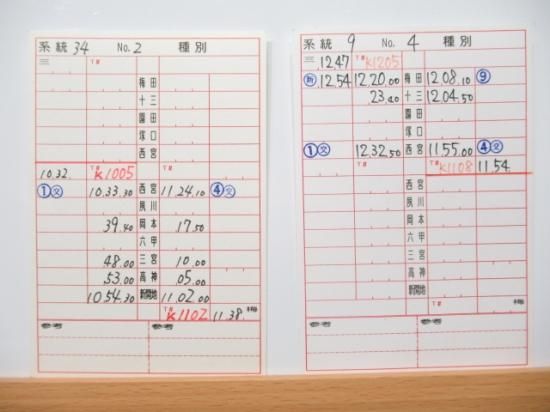 系統 34 No. 2 種別
三
下り
梅田
十三
園田
塚口
西宮
10.32. 下り K1005
①交 10.33.30 西宮 11.24.10 ④交
夙川
39.40 岡本 17.50
六甲
48.00 三宮 10.00
53.00 高神 05.00
10 54.30 新開地 11.02.00
下り K1102 11.38. 梅
参考 参考
系統 9 No. 4 種別
三 12.47 下り K1205
新 12.54 12 20.00 梅田 12 08.10 ⑨
23.40 十三 12 04.50
園田
塚口
①交 12.32.50 西宮 11 55.00 ④交
下り K1108 11.54.
西宮
夙川
岡本
六甲
三宮
高神
新開地
梅
参考 参考